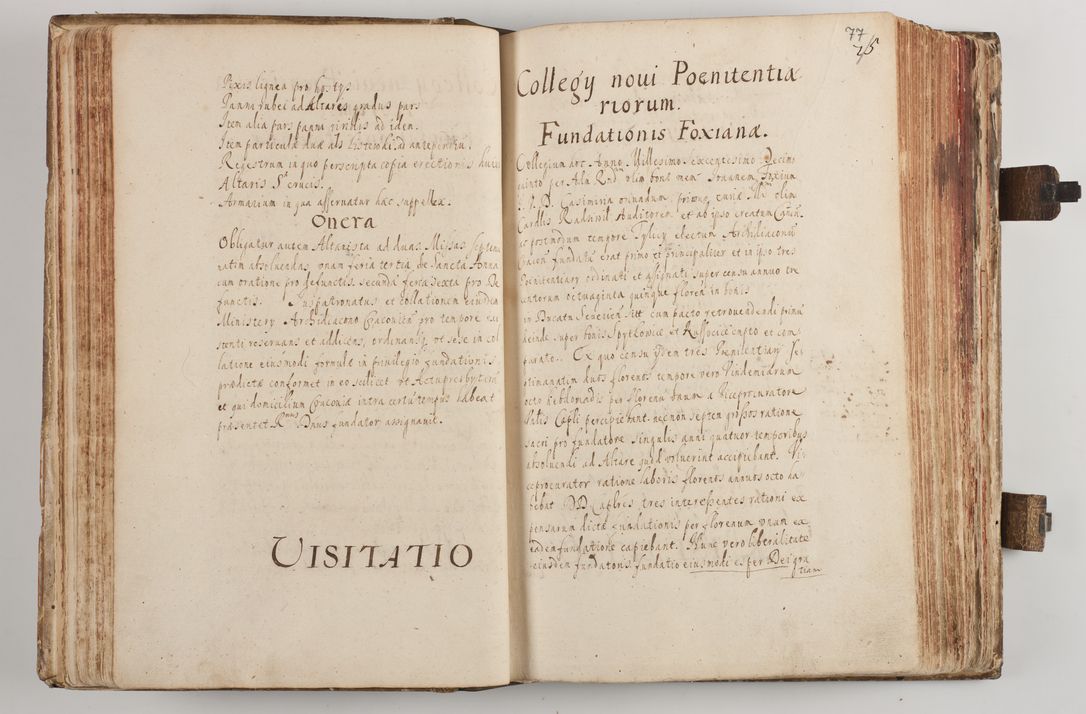 Pixis lignea pro hostys
Panni rubei ad Altares gradus pars
Item alia pars panni viridis ad idem.
Item particulæ duæ als Listewki ad antependiu
Regestrum in quo perscripta copia erectionis huius
Altaris S. crucis.
Armarium in qua asseruatur hæc suppellex.
Onera
Obligatur autem Altarista ad duas Missas septima
natim absoluendas, unam feria tertia de Sancta Anna
cum oratione pro defunctis, secunda feria sexta pro De
functis. Juspatronatus et collationem eiusdem
Ministery Archidiacono Cracouien pro tempore exi
stenti reseruans et addicens, ordinansq vt sese in col
latione eiusmodi formulæ in priuilegio fundationis
prædictæ conformet in eo scilicet vt Actu presbyterū
et qui domicilium Cracouiæ intra certū tempus habeat
præsentet Rmus Dnus fundator assignauit.
VISITATIO
77
75
Collegy noui Poenitentia
riorum.
Fundationis Foxianæ.
Collegium hoc Anno Millesimo Sexcentesimo Decimo
quinto per Adm Rndm olim bonæ mem Ioannem Foxium
I. V. D. Casimiria oriundum, primo curiæ Illmi olim
Cardlis Radziwil Auditorem et ab ipso creatum Canon.
ac postmodum tempore Tylicy electum Archidiaconū
Cracoū fundatū erat primo et principaliter et in ipso tres
Poenitentiary ordinati et assignati super censu annuo tre
centorum octuaginta quinque florenū in bonis
in Ducatu Seuerien sitt cum pacto retrouendendi primū
deinde super bonis Spytkowice et Russocice empto et com
parato. Ex quo censu ijdem tres Poenitentiary Sep
timanatim duos florenos tempore vero Vindemiarum
octo hebdomadis per florenū unum a Viceprocuratore
Vnlis Capli percipiebant. necnon septem grossos ratione
sacri pro fundatore singulis anni quatuor temporibus
absoluendi ad Altare quod voluerint accipiebant. Vi
ceprocurator ratione laboris florenos annuos octo ha
bebat DD Caplres tres interessentes rationi ex
pensarum dictæ fundationis per florenum vnum ex
eadem fundatione capiebant. Nunc vero liberalitate
eiusdem fundatoris fundatio eiusmodi est per Dei gra
tiam